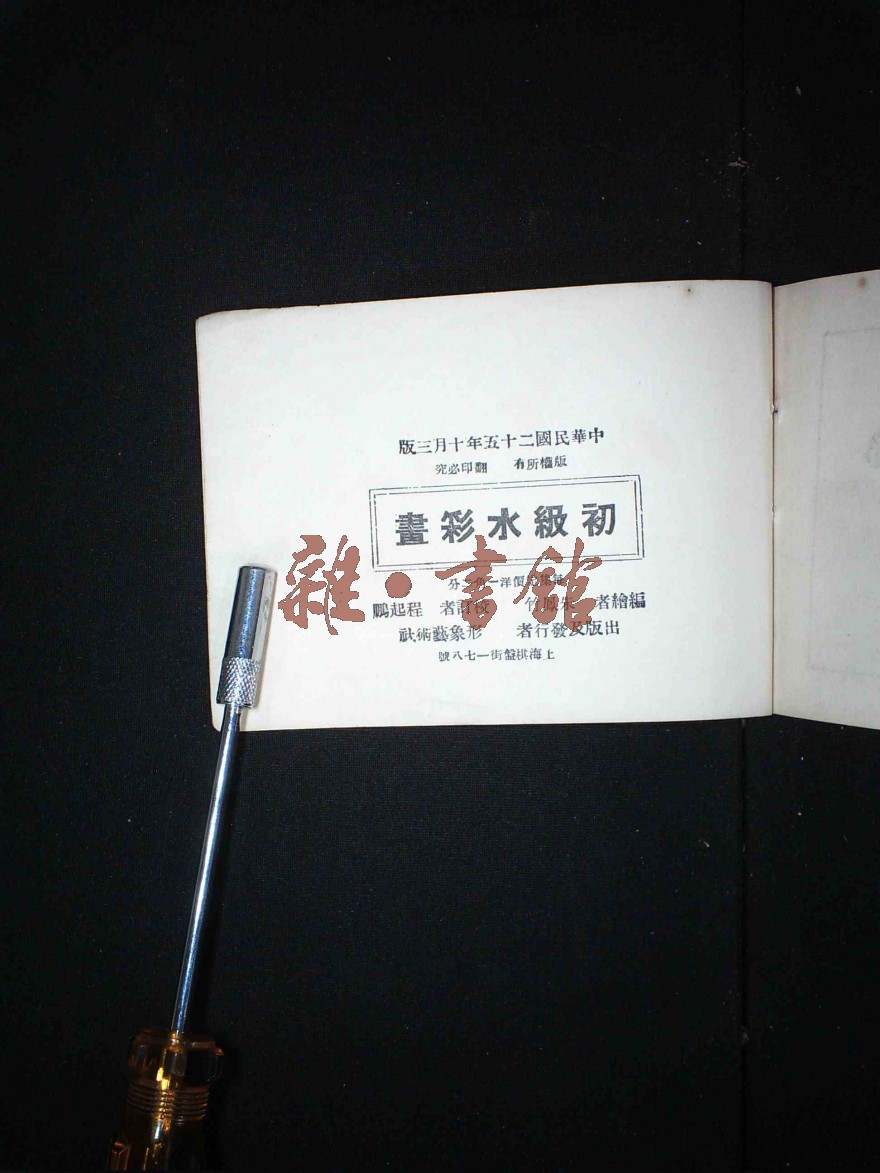 中華民國二十五年十月三版
版權所有 翻印必究
初級水彩畫
價洋一角 分
編繪者 朱鳳竹 校訂者 程起鵬
出版及發行者 形象藝術社
上海棋盤街一七八號
雜·書館